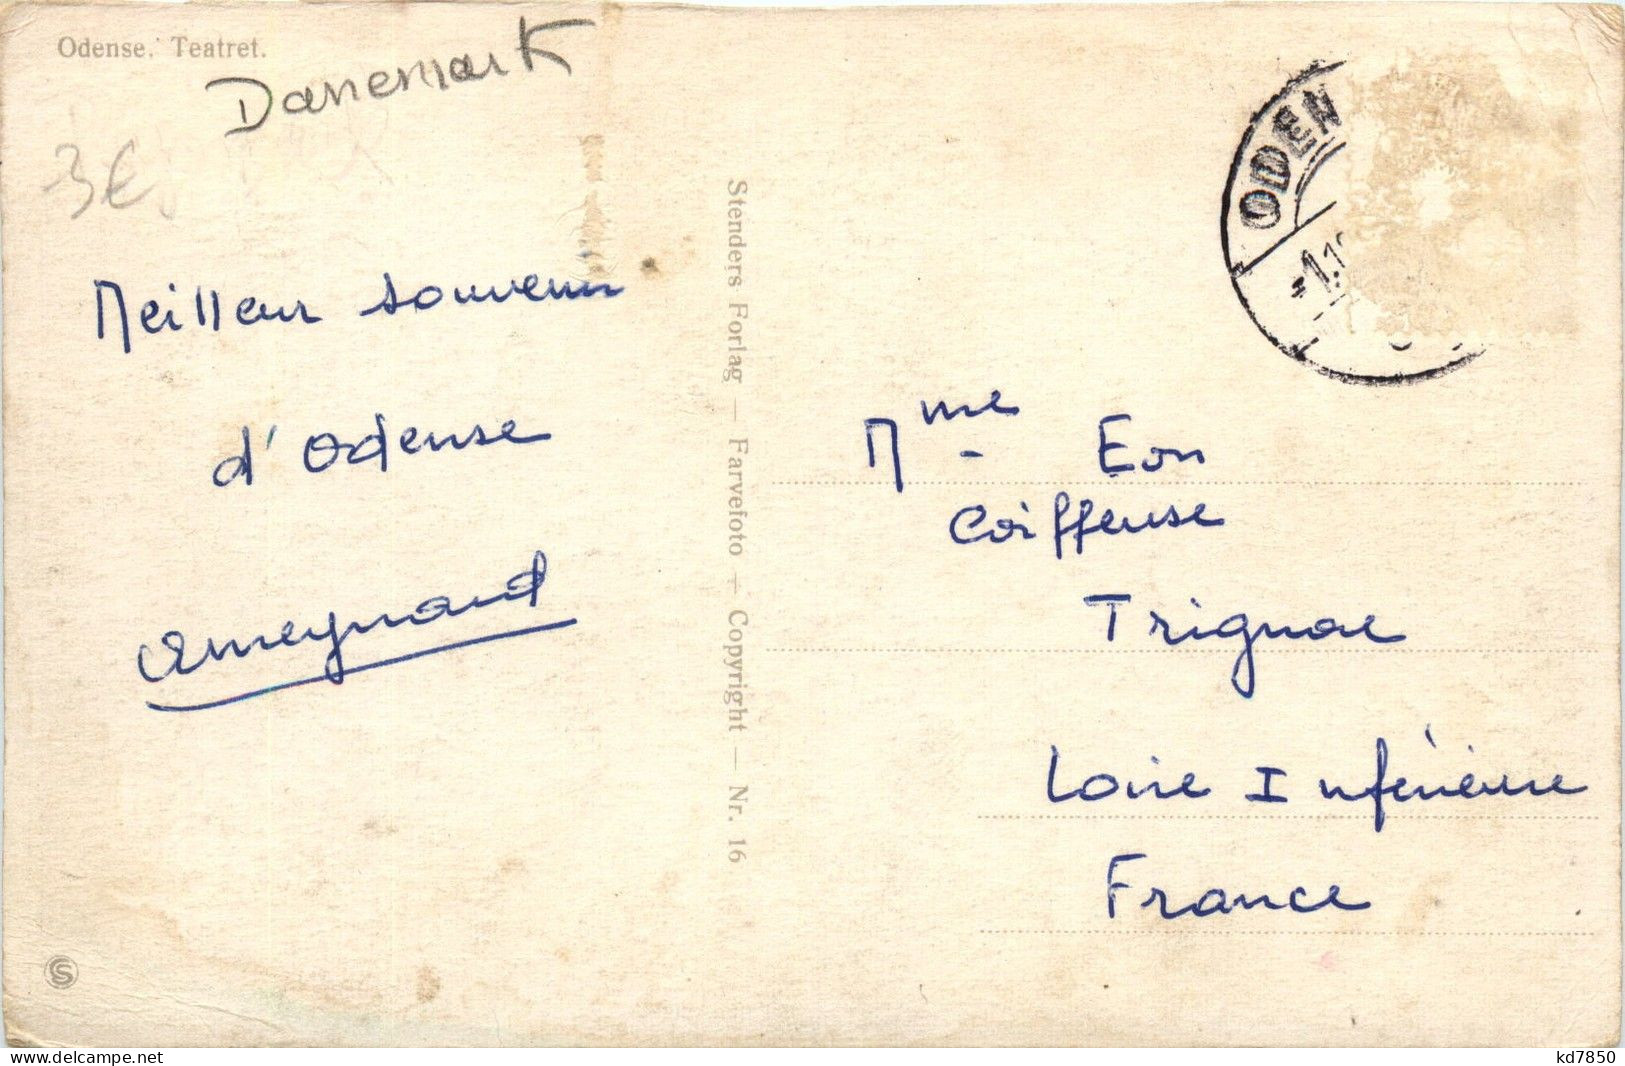 Odense. Teatret.
Danemark
3€
Meilleur souvenir
d'Odense
Stenders Forlag — Farvefoto — Copyright — Nr. 16
ODEN
Mme Eon
Coiffeuse
Trignac
Loire Inférieure
France
S
www.delcampe.net
kd7850